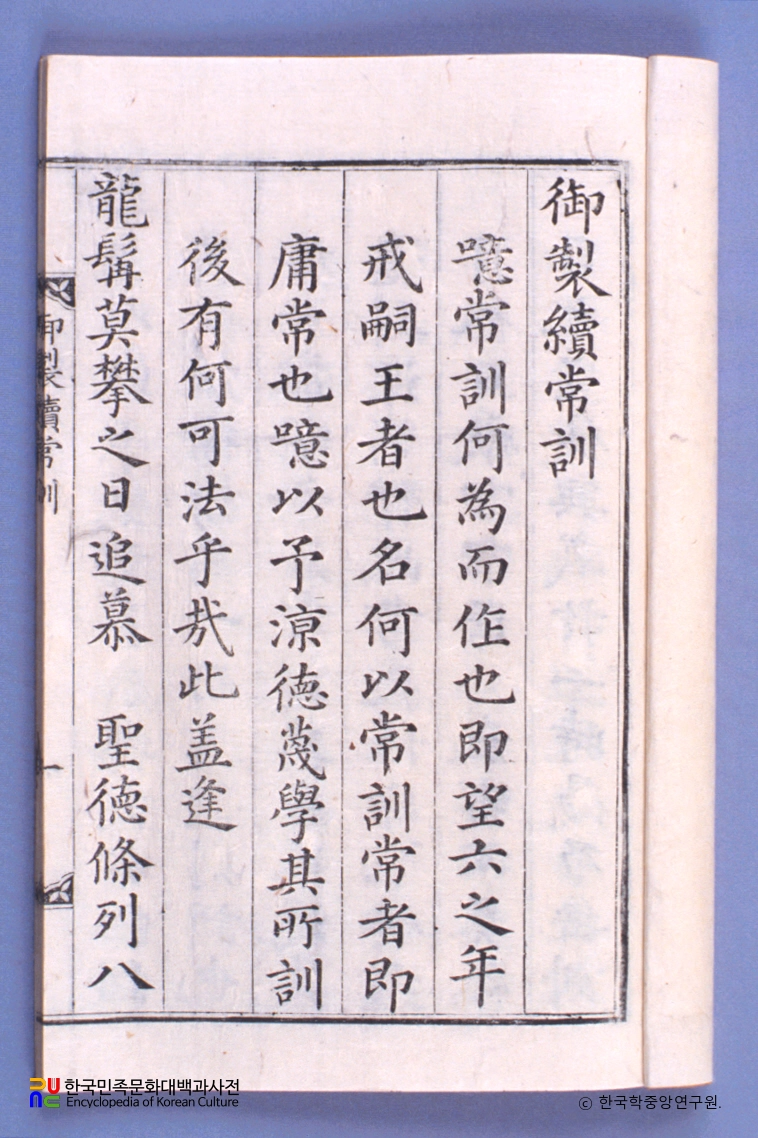 御製續常訓
噫常訓何為而作也即望六之年
戒嗣王者也名何以常訓常者即
庸常也噫以予涼德蔑學其所訓
後有何可法乎哉此盖逢
龍髯莫攀之日追慕 聖德條列八
御製續常訓
一
한국민족문화대백과사전
Encyclopedia of Korean Culture
ⓒ 한국학중앙연구원.